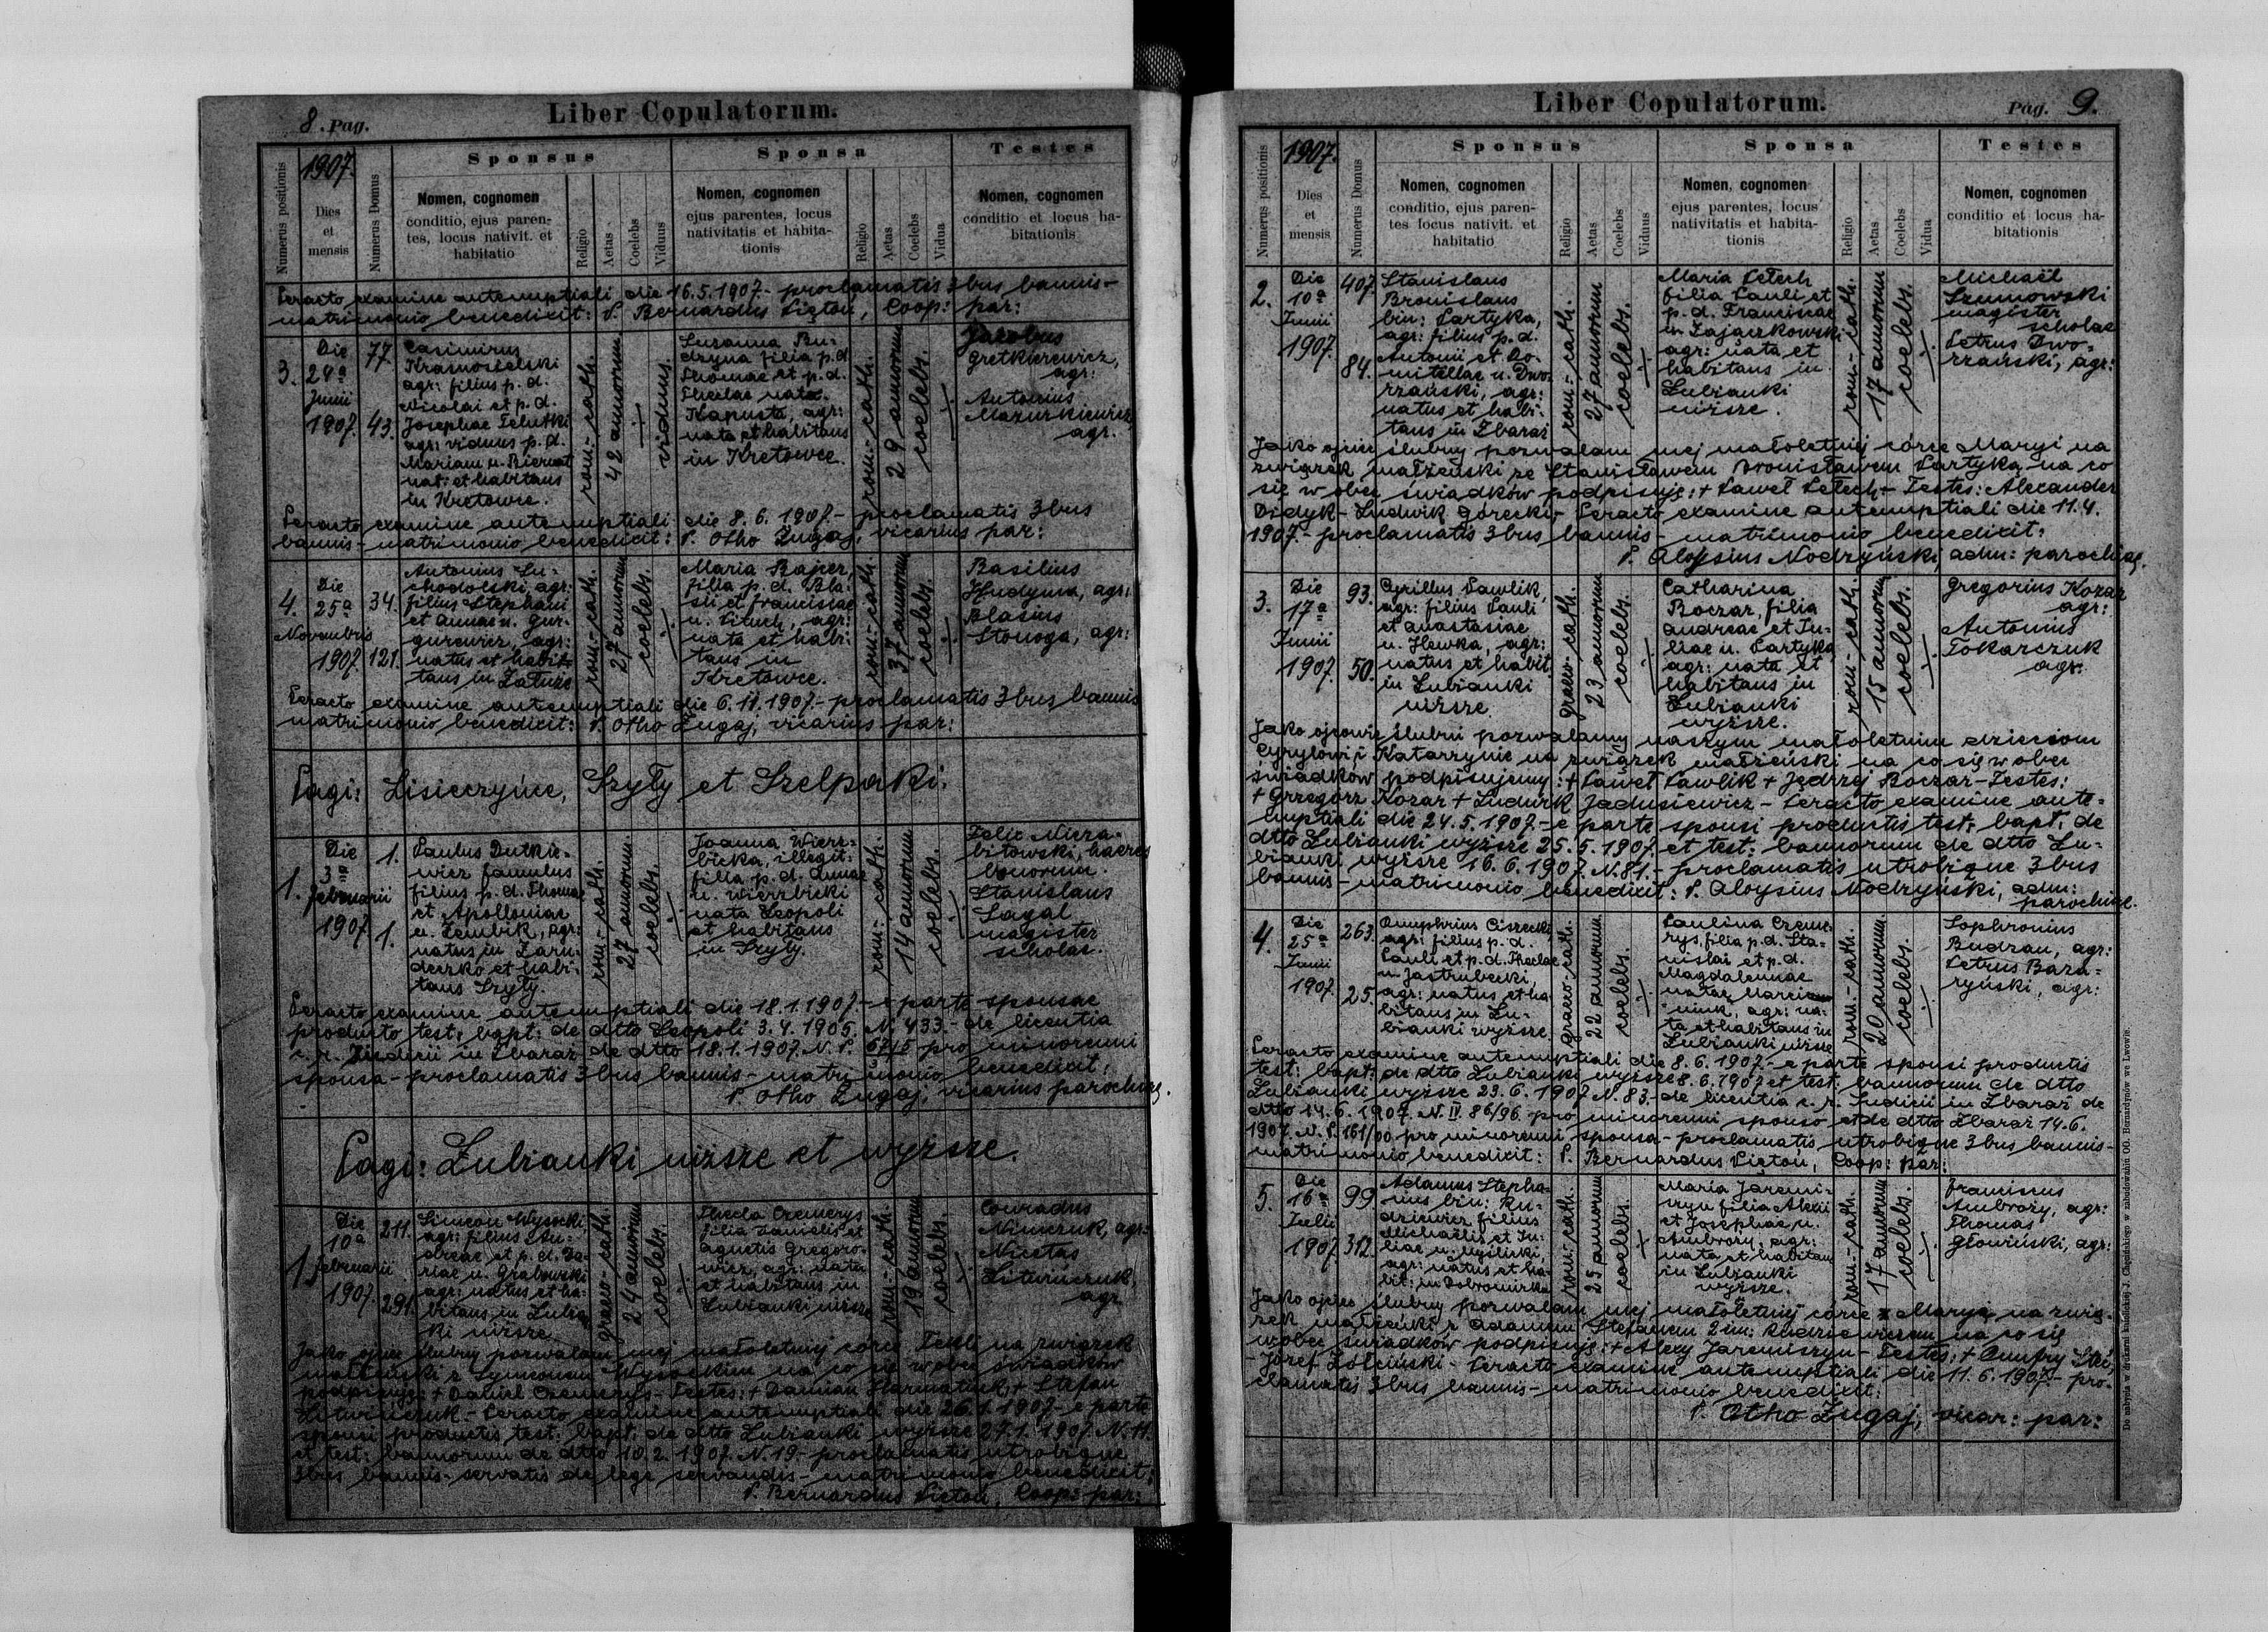 8. Pag.
Liber Copulatorum.
Numerus positionis
1907.
Dies
et
mensis
Numerus Domus
Sponsus
Nomen, cognomen
conditio, ejus paren-
tes, locus nativit. et
habitatio
Religio
Aetas
Coelebs
Viduus
Sponsa
Nomen, cognomen
ejus parentes, locus
nativitatis et habita-
tionis
Religio
Aetas
Coelebs
Vidua
Testes
Nomen, cognomen
conditio et locus ha-
bitationis
Peracto examine antenuptiali die 16.5.1907.- proclamatis 3bus bannis-
matrimonio benedixit: P. Bernardus Piętoń, Coop: par:
3.
Die
24a
Junii
1907.
77.
43.
Casimirus
Krasnosielski
agr: filius p. d.
Nicolai et p. d.
Josephae Felutki
agr: viduus p. d.
Mariam u. Biernat
nat: et habitans
in Kretowce.
rom.-cath.
42 annorum
viduus.
Susanna Bu-
dzyna filia p. d.
Thomae et p. d.
Theclae nata
Kapusta, agr:
nata et habitans
in Kretowce.
rom.-cath.
29 annorum
coelebs.
Jacobus
Gretkierewicz,
agr:
Antonius
Mazurkiewicz
agr.
Peracto examine antenuptiali die 8. 6. 1907.- proclamatis 3bus
bannis- matrimonio benedixit: P. Otho Żugaj, vicarius par:
4.
Die
25a
Novembris
1907.
34.
121.
Antonius Su-
chodolski, agr:
filius Stephani
et Annae u. Gur-
gurewicz, agr:
natus et habi-
tans in Załuże
rom.-cath.
27 annorum
coelebs.
Maria Bajer,
filia p. d. Bla-
sii et Franciscae
u. Pituch, agr:
nata et habi-
tans in
Kretowce.
rom.-cath.
37 annorum
coelebs.
Basilius
Hudyma, agr:
Blasius
Stonoga, agr:
Peracto examine antenuptiali die 6.11.1907.- proclamatis 3bus bannis
matrimonio benedixit: P. Otho Żugaj, vicarius par:
Pagi: Lisieczyńce, Szyły et Szelpaki.
1.
Die
3a
Februarii
1907.
1.
1.
Paulus Dutkie-
wicz famulus
filius p. d. Thomae
et Apolloniae
u. Zembik, agr:
natus in Zaru-
deczko et habi-
tans Szyły.
rom.-cath.
27 annorum.
coelebs.
Joanna Wierz-
bicka, illegit:
filia p. d. Annae
u. Wierzbicki
nata Leopoli
et habitans
in Szyły.
rom.-cath.
14 annorum
coelebs.
Felix Nieza-
bitowski, haeres
bonorum.
Stanislaus
Sagal
magister
scholae.
Peracto examine antenuptiali die 18.1.1907.- e parte sponsae
producto test: bapt: de dtto Leopoli 3. 4. 1905. N. 433.- de licentia
c. r. Iudicii in Zbaraż de dtto 18.1.1907. N. P. 67/15 pro minorenni
sponsa- proclamatis 3bus bannis- matrimonio benedixit:
P. Otho Żugaj, vicarius parochiae.
Pagi: Łubianki niższe et wyższe.
1.
Die
10a
Februarii
1907.
211.
291.
Simeon Wysocki
agr: filius An-
dreae et p. d. Da-
riae u. Grabowski
agr: natus et ha-
bitans in Łubian
ki niższe
graeco-cath.
24 annorum
coelebs.
Thecla Czemerys
filia Danielis et
Agnetis Gregoro-
wicz, agr: nata
et habitans in
Łubianki niższe
rom.-cath.
19 annorum
coelebs.
Conradus
Nimczuk, agr:
Nicetas
Litwińczuk,
agr.
Jako ojciec ślubny pozwalam mej małoletniej córce Tekli na związek
małżeński z Symeonem Wysockim na co się wobec świadków
podpisuję: + Daniel Czemerys- Testes: + Damian Harmatiuk, + Stefan
Litwińczuk - Peracto examine antenuptiali die 26.1.1907- e parte
sponsi productis test: bapt: de dtto Łubianki wyższe 27.1.1907. N. 11.
et test: bannorum de dtto 10.2.1907. N. 19.- proclamatis utrobique
3bus bannis- servatis de lege servandis- matrimonio benedixit:
P. Bernardus Piętoń, Coop: par:
Liber Copulatorum.
Pag. 9.
Numerus positionis
1907.
Dies
et
mensis
Numerus Domus
Sponsus
Nomen, cognomen
conditio, ejus paren-
tes locus nativit. et
habitatio
Religio
Aetas
Coelebs
Viduus
Sponsa
Nomen, cognomen
ejus parentes, locus
nativitatis et habita-
tionis
Religio
Aetas
Coelebs
Vidua
Testes
Nomen, cognomen
conditio et locus ha-
bitationis
2.
Die
10a
Junii
1907.
407
84.
Stanislaus
Bronislaus
bin: Partyka,
agr: filius p. d.
Antonii et Do-
mitillae u. Dwo-
rzański, agr:
natus et habi-
tans in Zbaraż
rom.-cath.
27 annorum
coelebs.
Maria Petech
filia Pauli et
p. d. Franciscae
u. Zajączkowski
agr: nata et
habitans in
Łubianki
niższe.
rom.-cath.
17 annorum
coelebs.
Michaël
Szumowski
magister
scholae
Petrus Dwo-
rzański, agr:
Jako ojciec ślubny pozwalam mej małoletniej córce Maryi na
związek małżeński ze Stanisławem Bronisławem Partyką na co
się w obec świadków podpisuję: + Paweł Petech- Testes: Alexander
Didyk- Ludwik Górecki,- Peracto examine antenuptiali die 11.4.
1907.- proclamatis 3bus bannis- matrimonio benedixit:
P. Aloysius Nodzyński, adm: parochiae.
3.
Die
17a
Junii
1907.
93.
50.
Cyrillus Pawlik,
agr: filius Pauli
et Anastasiae
u. Hewka, agr:
natus et habit.
in Łubianki
niższe.
graeco-cath.
23 annorum
coelebs.
Catharina
Boczar, filia
Andreae et Ju-
liae u. Partyka
agr: nata et
habitans in
Łubianki
wyższe.
rom-cath.
15 annorum
coelebs.
Gregorius Kozar
agr:
Antonius
Tokarczuk
agr.
Jako ojcowie ślubni pozwalamy naszym małoletnim dzieciom
Cyrylowi i Katarzynie na związek małżeński na co się w obec
świadków podpisujemy: + Paweł Pawlik + Jędrzej Boczar- Testes:
+ Grzegorz Kozar + Ludwik Jadusiewicz- Peracto examine ante-
nuptiali die 24.5.1907.- e parte sponsi productis test: bapt. de
dtto Łubianki wyższe 25.5.1907. et test: bannorum de dtto Łu-
bianki wyższe 16.6.1907. N. 81.- proclamatis utrobique 3bus
bannis- matrimonio benedixit: P. Aloysius Nodzyński, adm:
parochiae.
4.
Die
25a
Junii
1907.
263.
25.
Onuphrius Ciszecki
agr: filius p. d.
Pauli et p. d. Theclae
u. Jastrubecki,
agr: natus et ha
bitans in Łu-
bianki wyższe
graeco-cath.
22 annorum
coelebs.
Paulina Czeme-
rys, filia p. d. Sta-
nislai et p. d.
Magdalennae
natae Marci
niuk, agr: na-
ta et habitans in
Łubianki niższe
rom.-cath.
20 annorum
coelebs.
Sophronius
Budzan, agr:
Petrus Baza-
ryński, agr:
Peracto examine antenuptiali die 8.6.1907.- e parte sponsi productis
test: bapt: de dtto Łubianki wyższe 8.6.1907 et test: bannorum de dtto
Łubianki wyższe 23.6.1907 N. 83.- de licentia c. r. Iudicii in Zbaraż de
dtto 14.6.1907. N. IV. 86/96 pro minorenni sponso et de dtto Zbaraż 14.6.
1907. N. P. 161/00 pro minorenni sponsa- proclamatis utrobique 3bus bannis-
matrimonio benedixit: P. Bernardus Piętoń, Coop: par:
5.
Die
16a
Julii
1907.
99.
312.
Adamus Stepha-
nus bin: Ku-
dziewicz filius
Michaëlis et Ju-
liae u. Myśliński,
agr: natus et ha-
bit: in Dobromirka
rom.-cath.
25 annorum
coelebs.
Maria Jaremi-
szyn filia Alexii
et Josephae u.
Ambroży, agr:
nata et habitans
in Łubianki
wyższe.
rom.-cath.
17 annorum
coelebs.
Franciscus
Ambroży, agr:
Thomas
Głowiński, agr:
Jako ojciec ślubny pozwalam mej małoletniej córce Maryi na zwią-
zek małżeński z Adamem Stefanem 2im: Kudziewiczem na co się
wobec świadków podpisuję: + Alexy Jaremiszyn- Testes: + Onufry
- Józef Żółciński- Peracto examine antenuptiali die 11.6.1907.- pro-
clamatis 3bus bannis- matrimonio benedixit:
P. Otho Żugaj, vicar: par:
Do nabycia w drukarni katolickiej J. Chęcińskiego w zabudowaniu OO. Bernardynów we Lwowie.